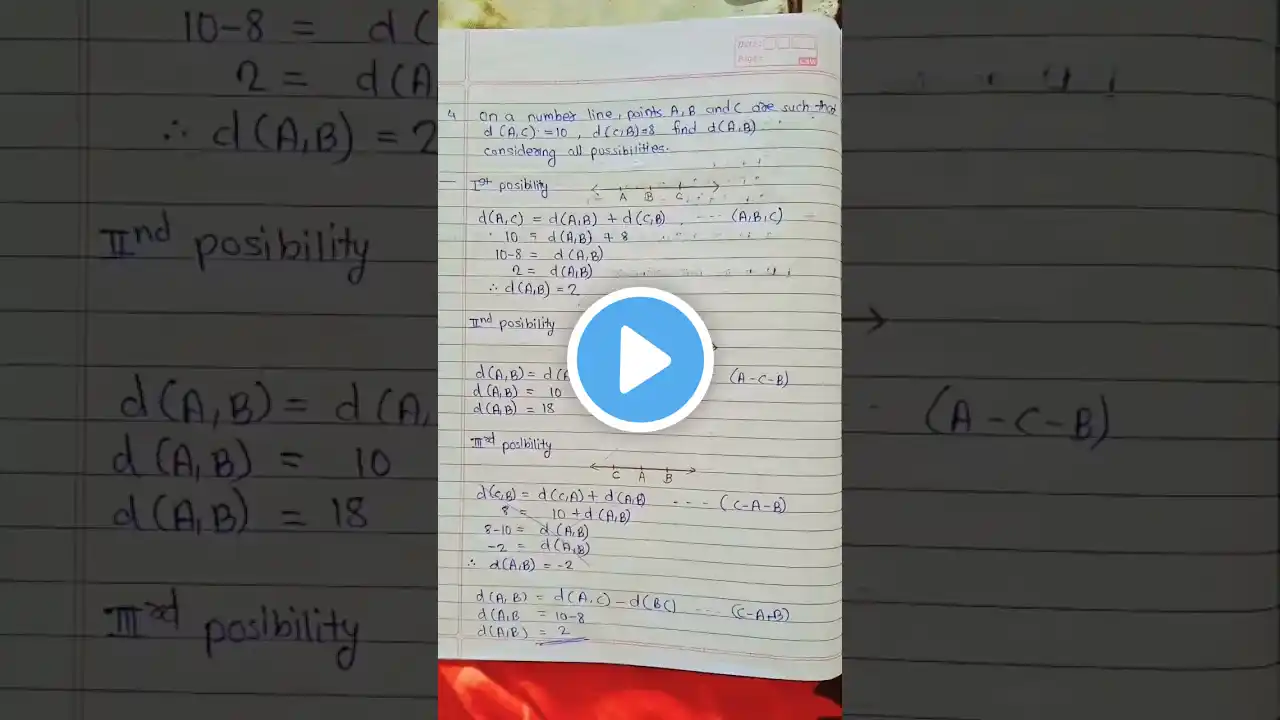 Date:
Page:
4 on a number line, points A, B and C are such that
d (A,C) =10 , d(C,B)=8 find d(A,B)
considering all possibilities.
Ist posibility
A B C
d(A,C) = d(A,B) + d(C,B) ---- (A,B,C)
10 = d(A,B) + 8
10-8 = d(A,B)
2 = d(A,B)
∴ d(A,B) = 2
IInd posibility
d(A,B) = d(A (A-C-B)
d(A,B) = 10
d(A,B) = 18
IIIrd posibility
C A B
d(C,B) = d(C,A) + d(A,B) ---- (C-A-B)
8 = 10 + d(A,B)
8-10 = d(A,B)
-2 = d(A,B)
∴ d(A,B) = -2
d(A,B) = d(A,C) - d(BC) ---- (C-A-B)
d(A,B = 10-8
d(A,B) = 2
10-8 = d(
2 = d(A
∴ d(A,B) = 2
IInd posibility
d(A,B) = d(A, (A-C-B)
d(A,B) = 10
d(A,B) = 18
IIIrd posibility